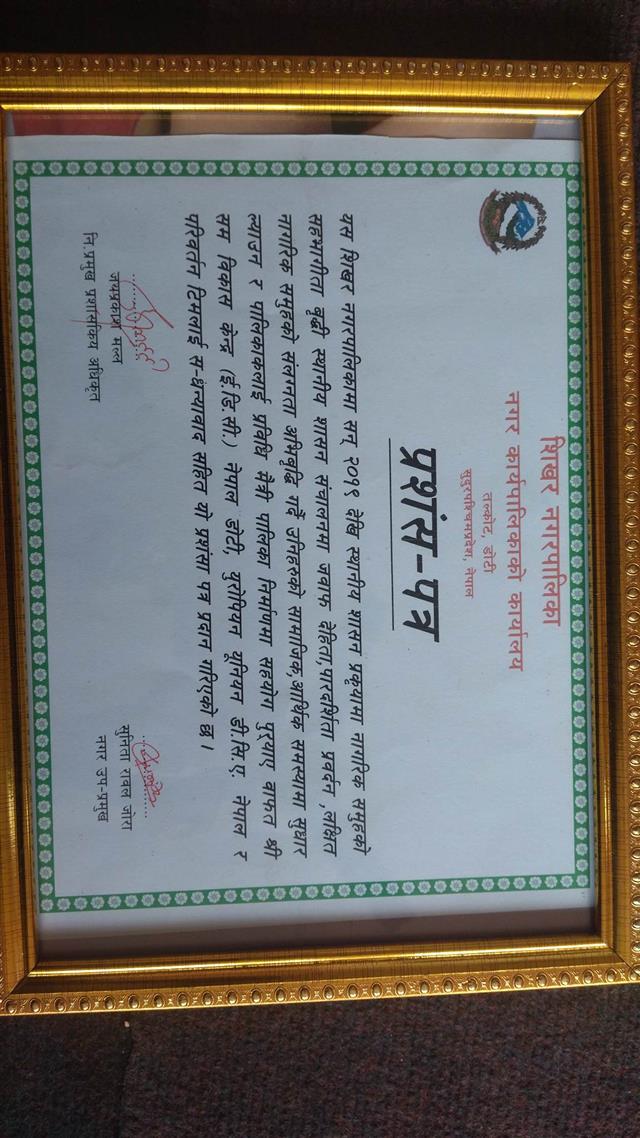 शिखर नगरपालिका
नगर कार्यपालिकाको कार्यालय
तल्कोट, डोटी
सुदुरपश्चिमप्रदेश, नेपाल
प्रशंसा-पत्र
यस शिखर नगरपालिकामा सन् २०१९ देखि स्थानीय शासन प्रकृयामा नागरिक समुहको
सहभागीता बृद्धी स्थानीय शासन संचालनमा जवाफ देहिता,पारदर्शिता प्रवर्दन ,लक्षित
नागरिक समुहको संलग्नता अभिबृद्धि गर्दै उनिहरुको सामाजिक,आर्थिक समस्यामा सुधार
ल्याउन र पालिकाकलाई प्रविधि मैत्री पालिका निर्माणमा सहयोग पुर्‍याए वाफत श्री
सम विकास केन्द्र (ई.डि.सी.) नेपाल डोटी, युरोपियन युनियन डी.सि.ए. नेपाल र
परिवर्तन टिमलाई स-धंन्यावाद सहित यो प्रशंसा पत्र प्रदान गरिएको छ ।
जयप्रकाश मल्ल
नि.प्रमुख प्रशासकिय अधिकृत
सुनिता रावल जोरा
नगर उप-प्रमुख